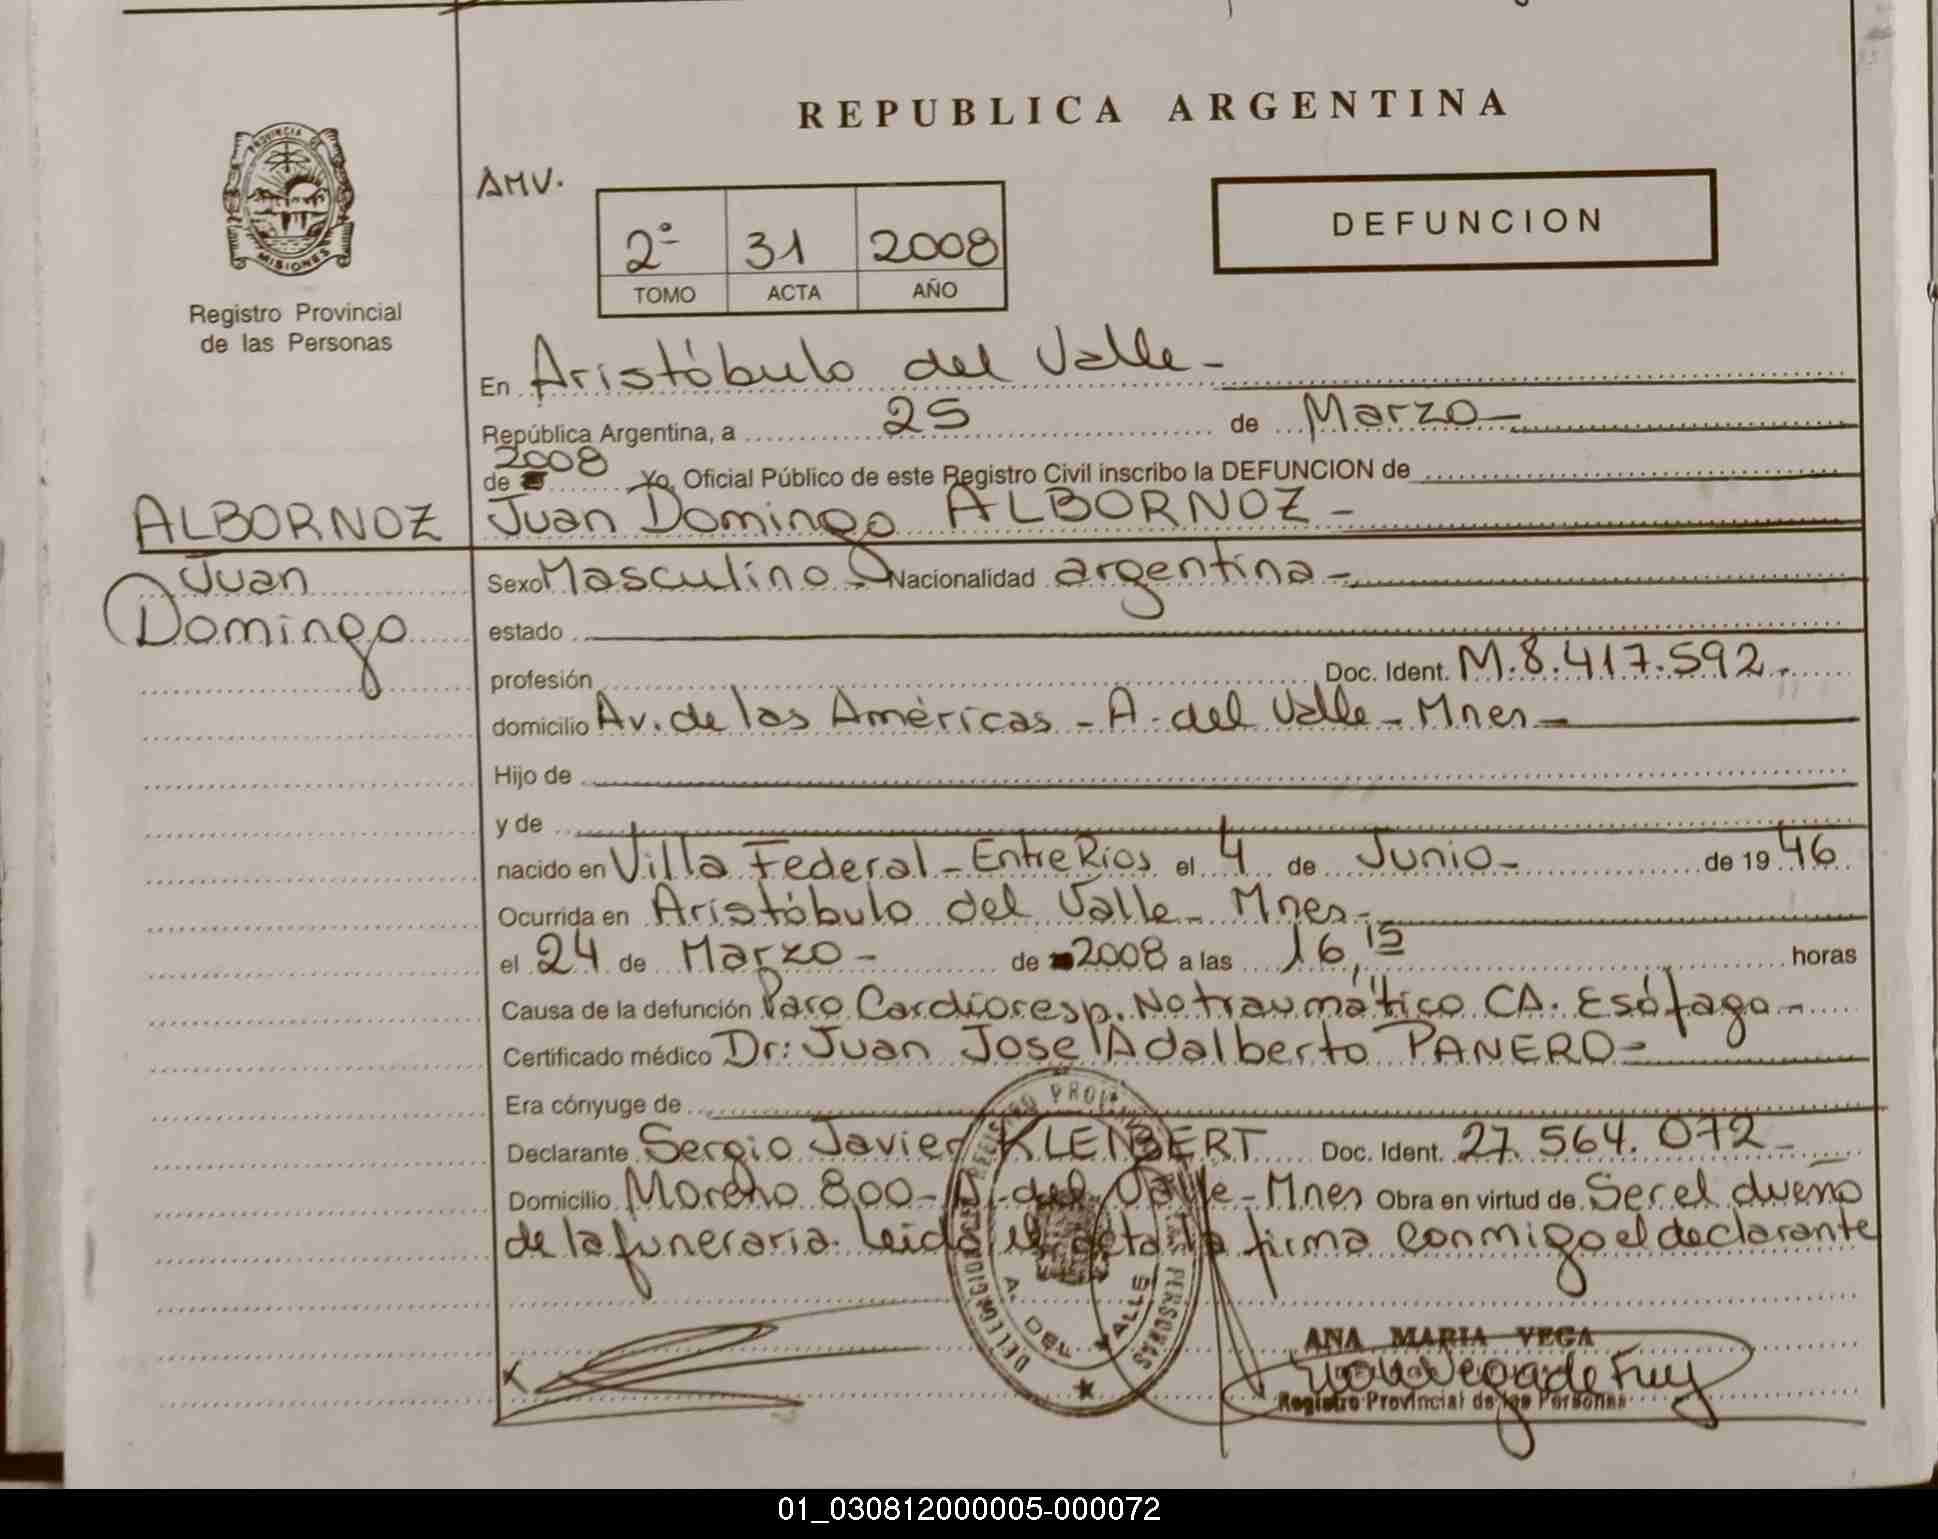 REPUBLICA ARGENTINA
PROVINCIA DE
MISIONES
Registro Provincial
de las Personas
AMV.
2º 31 2008
TOMO ACTA AÑO
DEFUNCION
En Aristóbulo del Valle -
República Argentina, a 25 de Marzo -
de 2008 Yo, Oficial Público de este Registro Civil inscribo la DEFUNCION de
ALBORNOZ
Juan
Domingo
Juan Domingo ALBORNOZ -
Sexo Masculino - Nacionalidad argentina -
estado
profesión Doc. Ident. M.8.417.592.
domicilio Av. de las Américas - A. del Valle - Mnes -
Hijo de
y de
nacido en Villa Federal - Entre Ríos el 4 de Junio - de 1946
Ocurrida en Aristóbulo del Valle - Mnes -
el 24 de Marzo - de 2008 a las 16,15 horas
Causa de la defunción Paro Cardioresp. No traumático CA. Esófago -
Certificado médico Dr: Juan Jose Adalberto PANERO -
Era cónyuge de
Declarante Sergio Javier KLENBERT Doc. Ident. 27.564.072 -
Domicilio Moreno 800 - A. del Valle - Mnes Obra en virtud de Ser el dueño
de la funeraria. Leida el acta la firma conmigo el declarante
A. DEL VALLE
X
ANA MARIA VEGA
Registro Provincial de las Personas
01_030812000005-000072